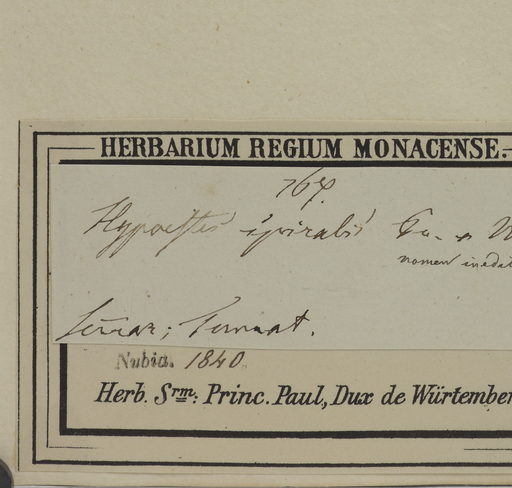 HERBARIUM REGIUM MONACENSE.
Hypoestes spiralis
nomen inedit
Sennar;
Nubia. 1840.
Herb. Srm: Princ. Paul, Dux de Würtember